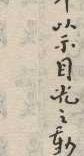 以示目光之